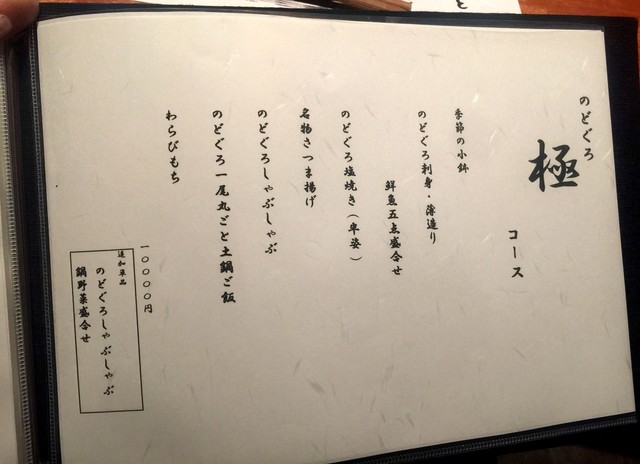 のどぐろ
極
コース
季節の小鉢
のどぐろ刺身・薄造り
鮮魚五点盛合せ
のどぐろ塩焼き（半姿）
名物さつま揚げ
のどぐろしゃぶしゃぶ
のどぐろ一尾丸ごと土鍋ご飯
わらびもち
一〇〇〇〇円
追加単品
のどぐろしゃぶしゃぶ
鍋野菜盛合せ
と